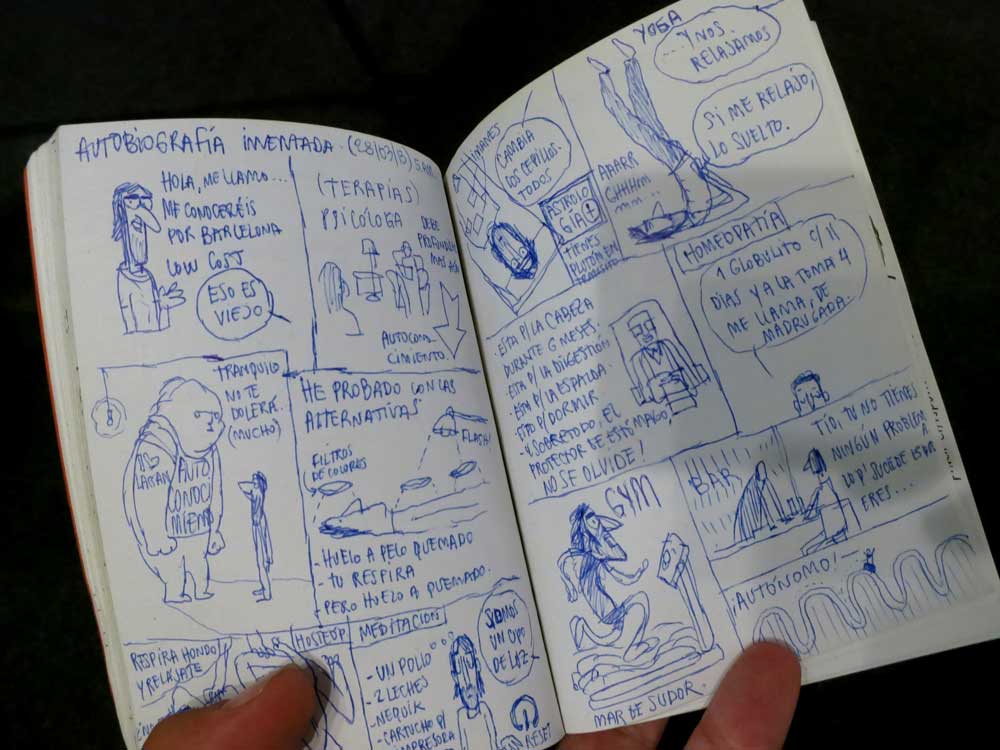 AUTOBIOGRAFÍA INVENTADA. (28/03/13)
HOLA, ME LLAMO...
ME CONOCERÉIS
POR BARCELONA
LOW COST
ESO ES
VIEJO
(TERAPIAS)
PSICÓLOGA
DEBE
PROFUNDIZAR
MAS AÚN
AUTOCONO-
CIMIENTO
TRANQUILO
NO TE
DOLERÁ.
(MUCHO)
AUTO
CONOCI
MIENTO
HE PROBADO CON LAS
ALTERNATIVAS
FILTROS
DE COLORES
FLASH!
- HUELO A PELO QUEMADO
- TU RESPIRA
- PERO HUELO A QUEMADO.
RESPIRA HONDO
Y RELAJATE
MEDITACION
- UN POLLO
- 2 LECHES
- NEQUIK
- CARTUCHO P/
IMPRESORA
SOMOS
UN OVO
DE LUZ
RESET
IMANES
CAMBIA
LOS CEPILLOS.
TODOS
ASTROLO
GIA
TIENES
PLUTÓN EN
YOGA
...Y NOS
RELAJAMOS
SI ME RELAJO,
LO SUELTO.
AAARR
GHHHM
MM..
HOMEOPATÍA
1 GLOBULITO C/11
DÍAS Y A LA TOMA 4
ME LLAMA, DE
MADRUGADA.
. ESTA P/LA CABEZA
DURANTE 6 MESES.
. ESTA P/ LA DIGESTIÓN
. ESTA P/ LA ESPALDA.
. ESTO P/ DORMIR.
Y SOBRETODO, EL
PROTECTOR DE ESTÓMAGO,
NO SE OLVIDE!
BAR
TIO, TU NO TIENES
NINGÚN PROBLEMA
LO Q' SUCEDE ES QUE
ERES...
GYM
MAR DE SUDOR.
¡AUTÓNOMO!